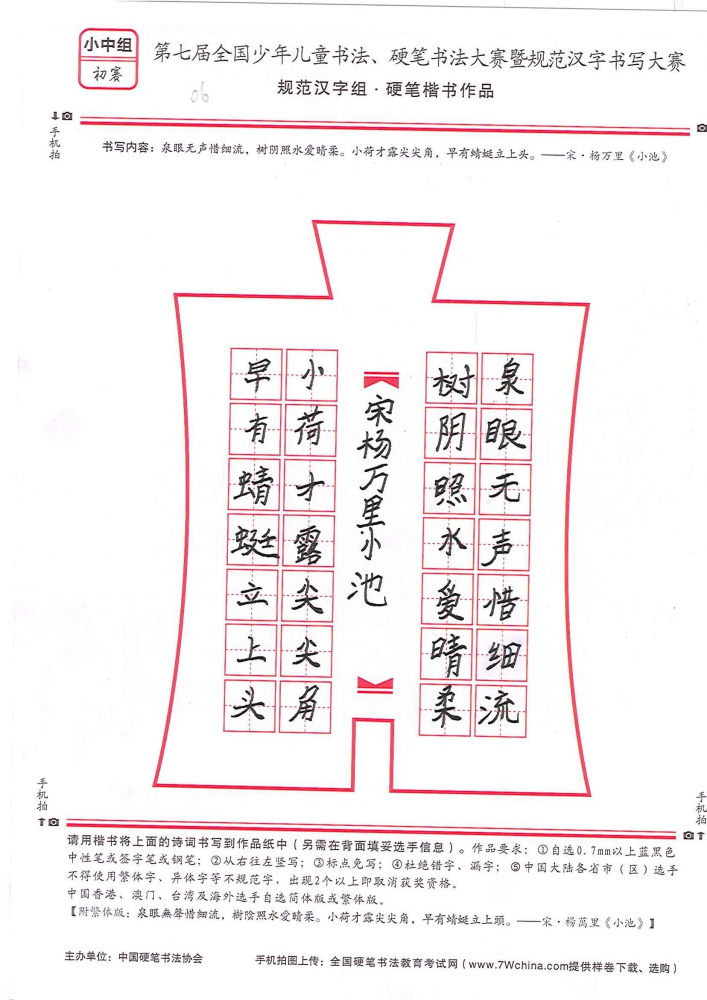 小中组
初赛
06
第七届全国少年儿童书法、硬笔书法大赛暨规范汉字书写大赛
规范汉字组·硬笔楷书作品
手机拍
书写内容：泉眼无声惜细流，树阴照水爱晴柔。小荷才露尖尖角，早有蜻蜓立上头。——宋·杨万里《小池》
泉眼无声惜细流
树阴照水爱晴柔
宋杨万里小池
小荷才露尖尖角
早有蜻蜓立上头
手机拍
手机拍
请用楷书将上面的诗词书写到作品纸中（另需在背面填妥选手信息）。作品要求：①自选0.7mm以上蓝黑色
中性笔或签字笔或钢笔；②从右往左竖写；③标点免写；④杜绝错字、漏字；⑤中国大陆各省市（区）选手
不得使用繁体字、异体字等不规范字，出现2个以上即取消获奖资格。
中国香港、澳门、台湾及海外选手自选简体版或繁体版。
【附繁体版：泉眼無聲惜細流，樹陰照水愛晴柔。小荷才露尖尖角，早有蜻蜓立上頭。——宋·楊萬里《小池》】
主办单位：中国硬笔书法协会
手机拍图上传：全国硬笔书法教育考试网（www.7Wchina.com提供样卷下载、选购）